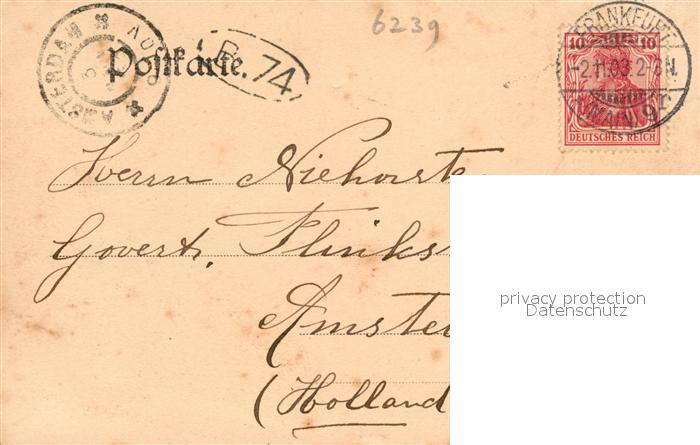 6239
AMSTERDAM
Postkarte.
B. 74
FRANKFURT
2.11.03.2-3N.
(MAIN) 9
10 10
DEUTSCHES REICH
Herrn Niehorst
Govert. Flinks
Amste
(Holland
privacy protection
Datenschutz